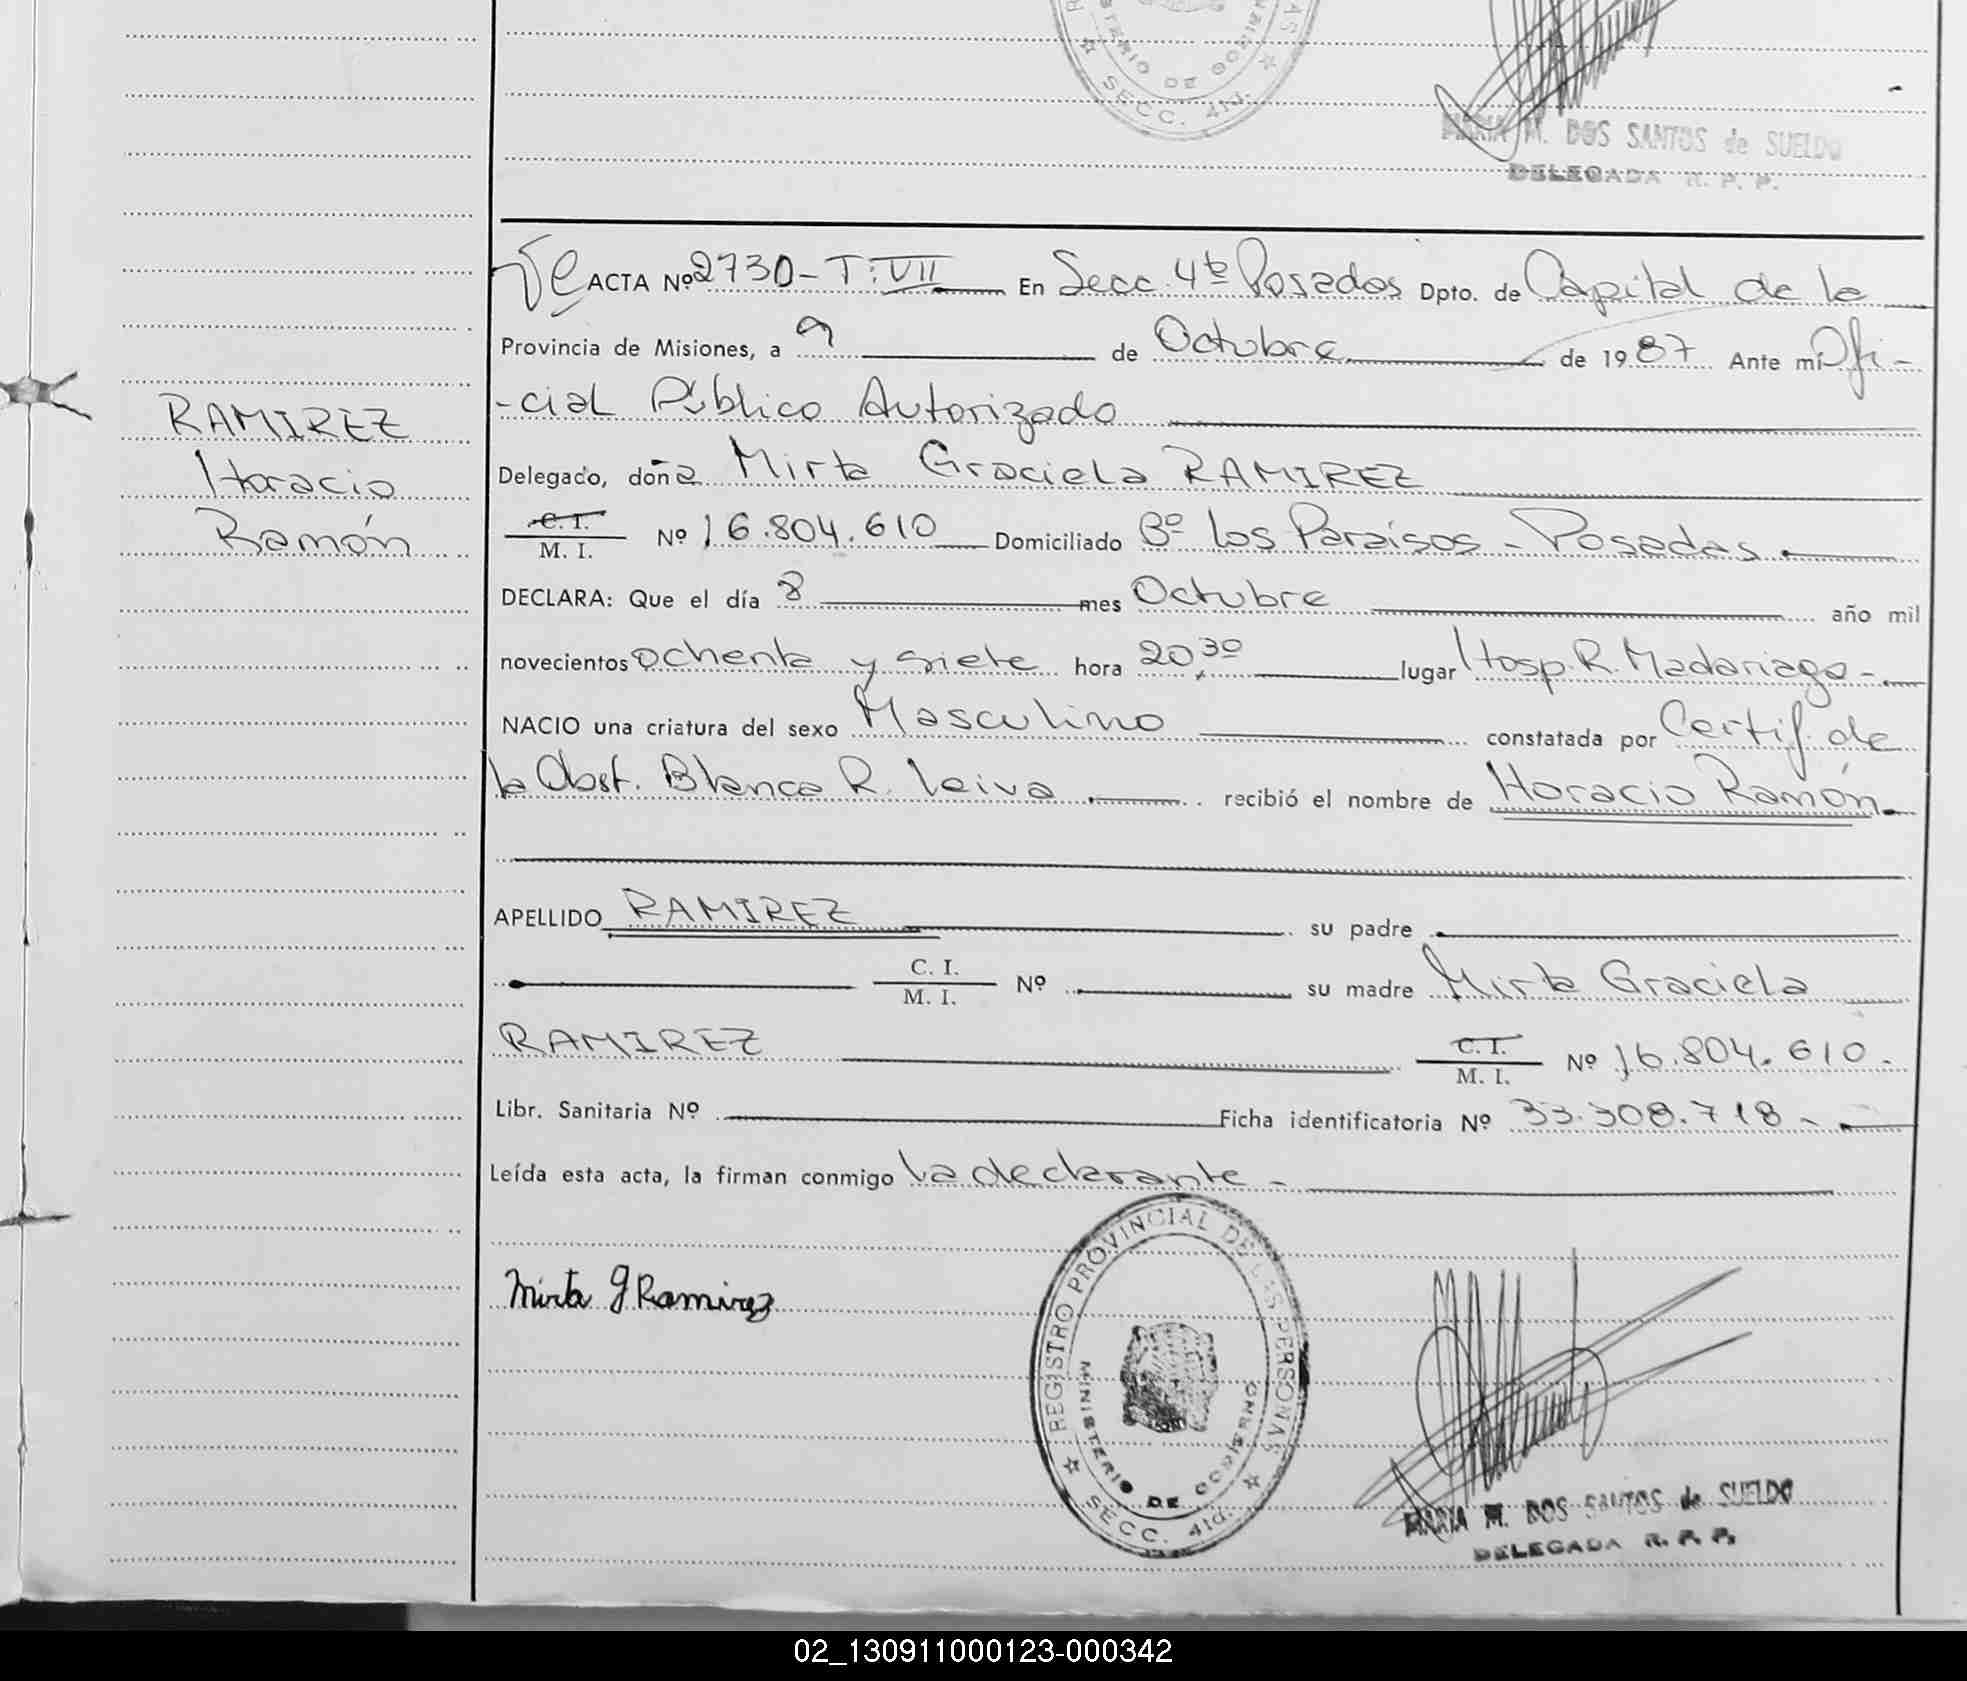 MINISTERIO DE GOBIERNO
SECC. 4ta.
MARIA M. DOS SANTOS de SUELDO
DELEGADA R. P. P.
ACTA Nº 2730 - T: VII En Secc. 4ta Posadas Dpto. de Capital de la
Provincia de Misiones, a 9 de Octubre de 1987 Ante mí Ofi-
-cial Público Autorizado
Delegado, doña Mirta Graciela RAMIREZ
C. I.
M. I. Nº 16.804.610 Domiciliado Bº Los Paraísos - Posadas
DECLARA: Que el día 8 mes Octubre año mil
novecientos ochenta y siete hora 20,30 lugar Hosp. R. Madariaga -
NACIO una criatura del sexo Masculino constatada por Certif. de
la Obst. Blanca R. Leiva recibió el nombre de Horacio Ramón
APELLIDO RAMIREZ su padre
C. I.
M. I. Nº su madre Mirta Graciela
RAMIREZ C. I.
M. I. Nº 16.804.610.
Libr. Sanitaria Nº Ficha identificatoria Nº 33.308.718 -
Leída esta acta, la firman conmigo la declarante -
RAMIREZ
Horacio
Ramón
Mirta G Ramirez
REGISTRO PROVINCIAL DE LAS PERSONAS
MINISTERIO DE GOBIERNO
SECC. 4ta.
MARIA M. DOS SANTOS de SUELDO
DELEGADA R. P. P.
02_130911000123-000342